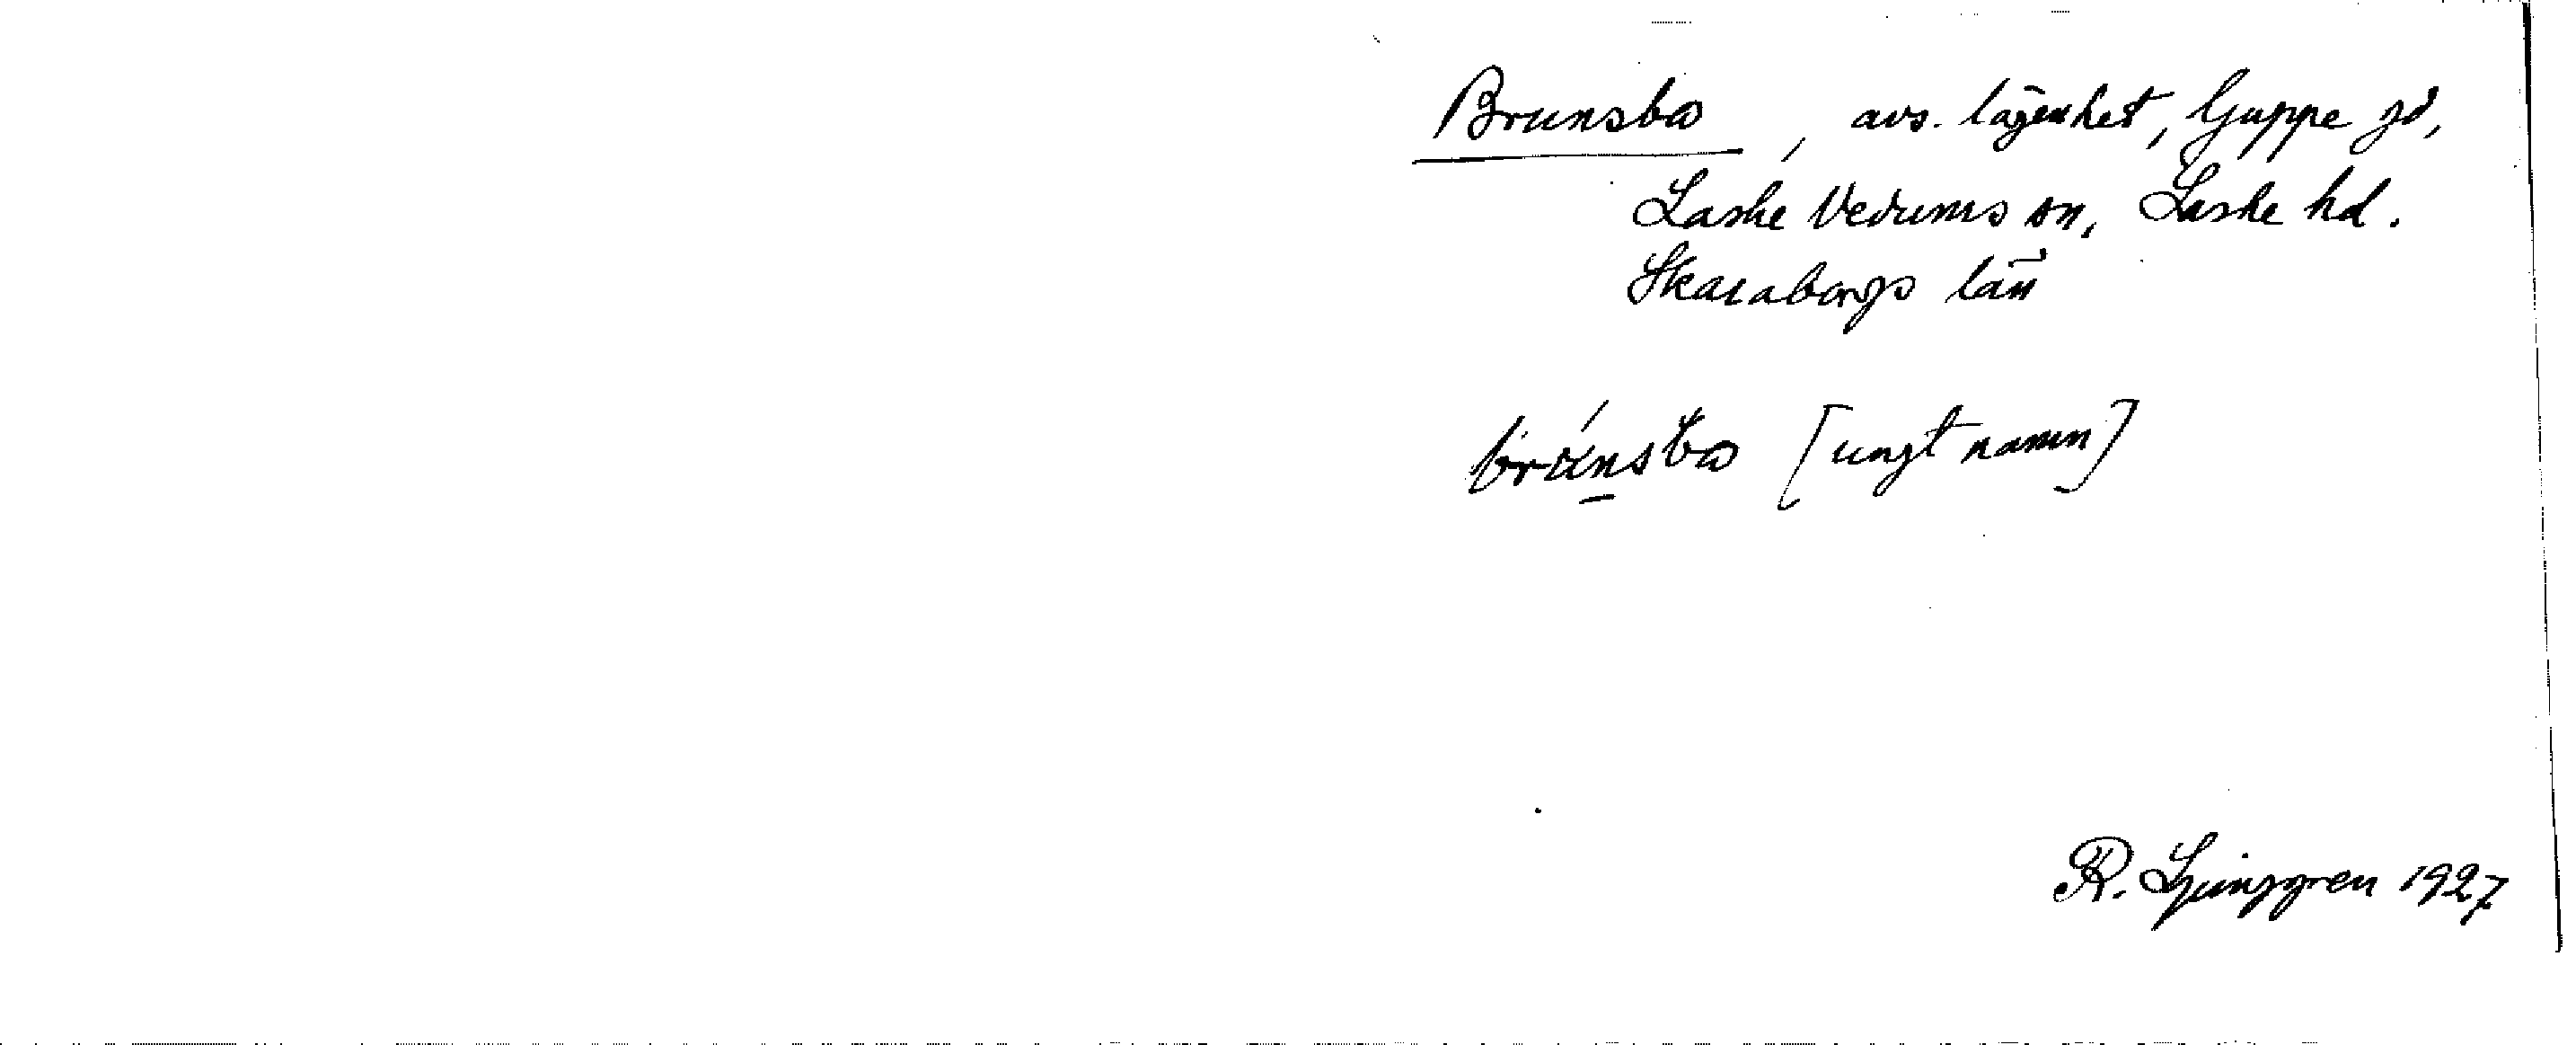 Brunsbo, avs. lägenhet, Guppe gd,
Laske Vedums sn, Laske hd.
Skaraborgs län
[ungt namn]
R. Ljunggren 1927